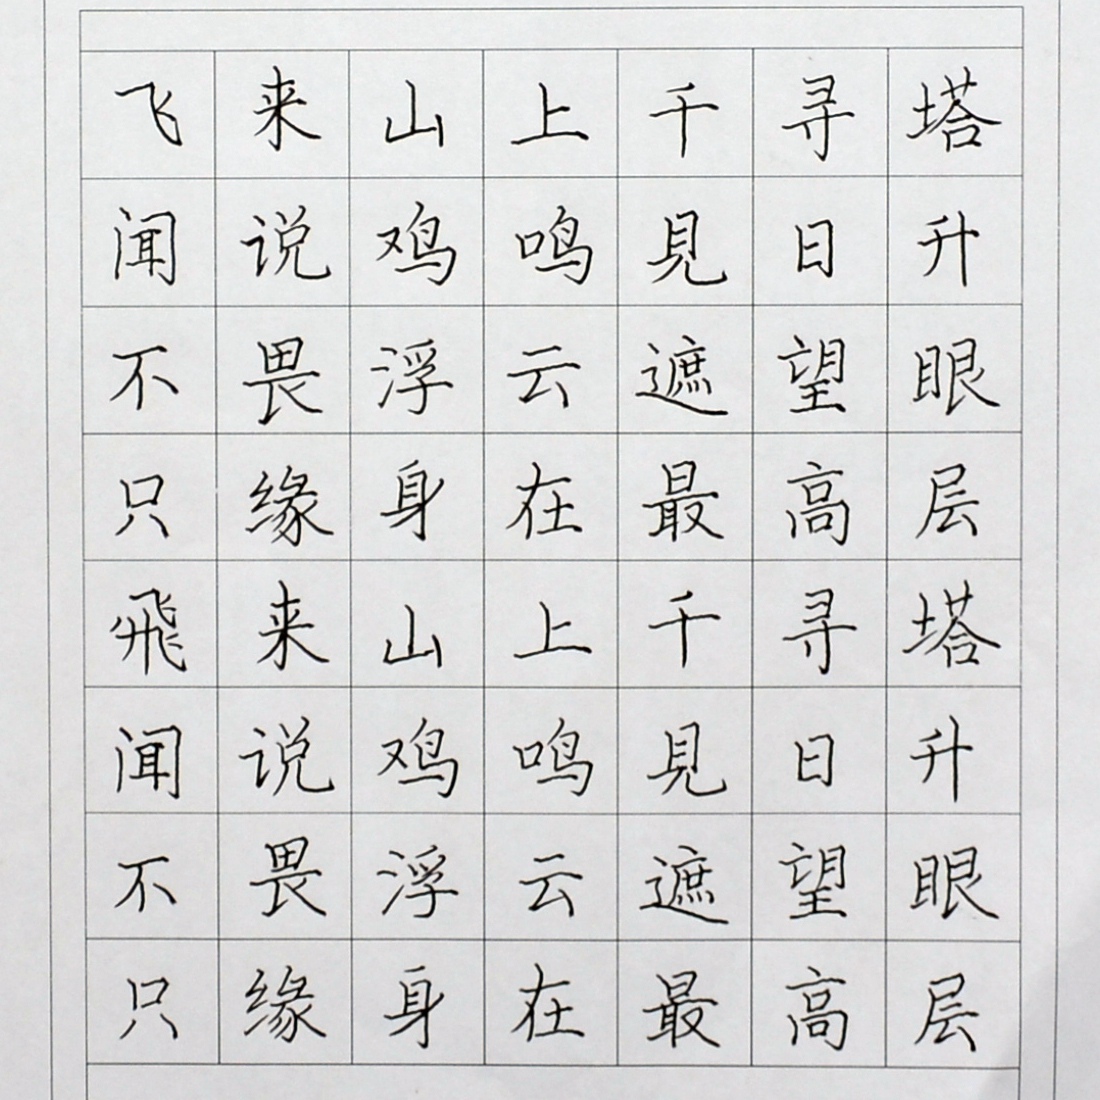 飞来山上千寻塔
闻说鸡鸣見日升
不畏浮云遮望眼
只缘身在最高层
飛来山上千寻塔
闻说鸡鸣見日升
不畏浮云遮望眼
只缘身在最高层